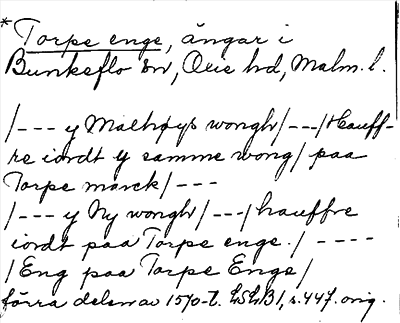 * Torpe enge, ängar i
Bunkeflo sn, Oxie hd, Malm. l.
/--- y Maelhøys wongh/---/Hauff-
re iordt y samme wong/ paa
Torpe marck/---
/--- y Ny wongh/---/hauffre
iordt paa Torpe enge./----
/Eng paa Torpe Enge/
förra delen av 1570-t. LSLB1, s. 447. orig.